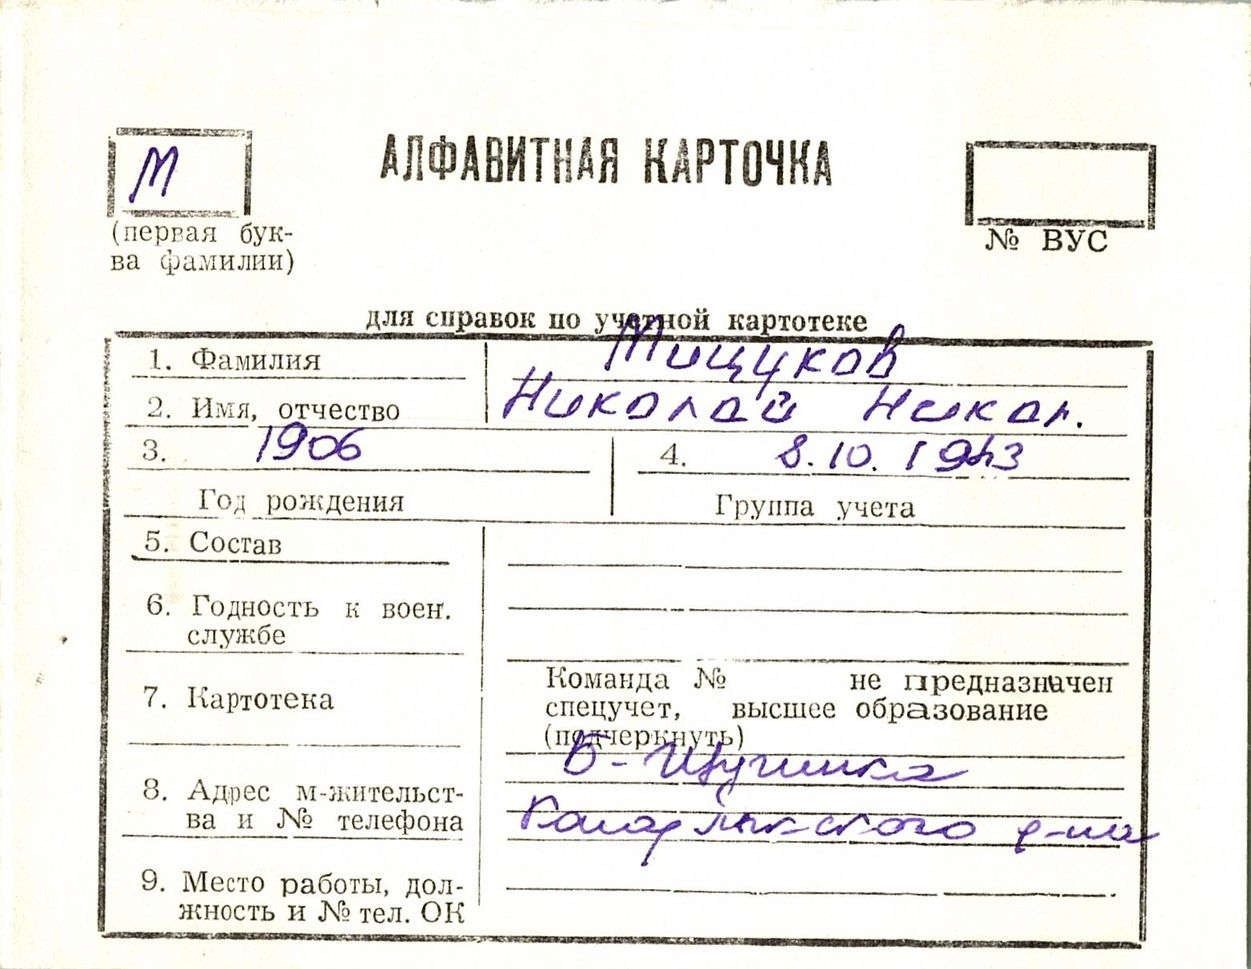 М
АЛФАВИТНАЯ КАРТОЧКА
(первая бук-
ва фамилии)
№ ВУС
для справок по учетной картотеке
1. Фамилия Мищуков
2. Имя, отчество Николай Никол.
3. 1906
4. 8.10.1943
Год рождения
Группа учета
5. Состав
6. Годность к воен.
службе
7. Картотека
Команда № не предназначен
спецучет, высшее образование
(подчеркнуть)
8. Адрес м-жительст-
ва и № телефона
Б-
р-на
9. Место работы, дол-
жность и № тел. ОК